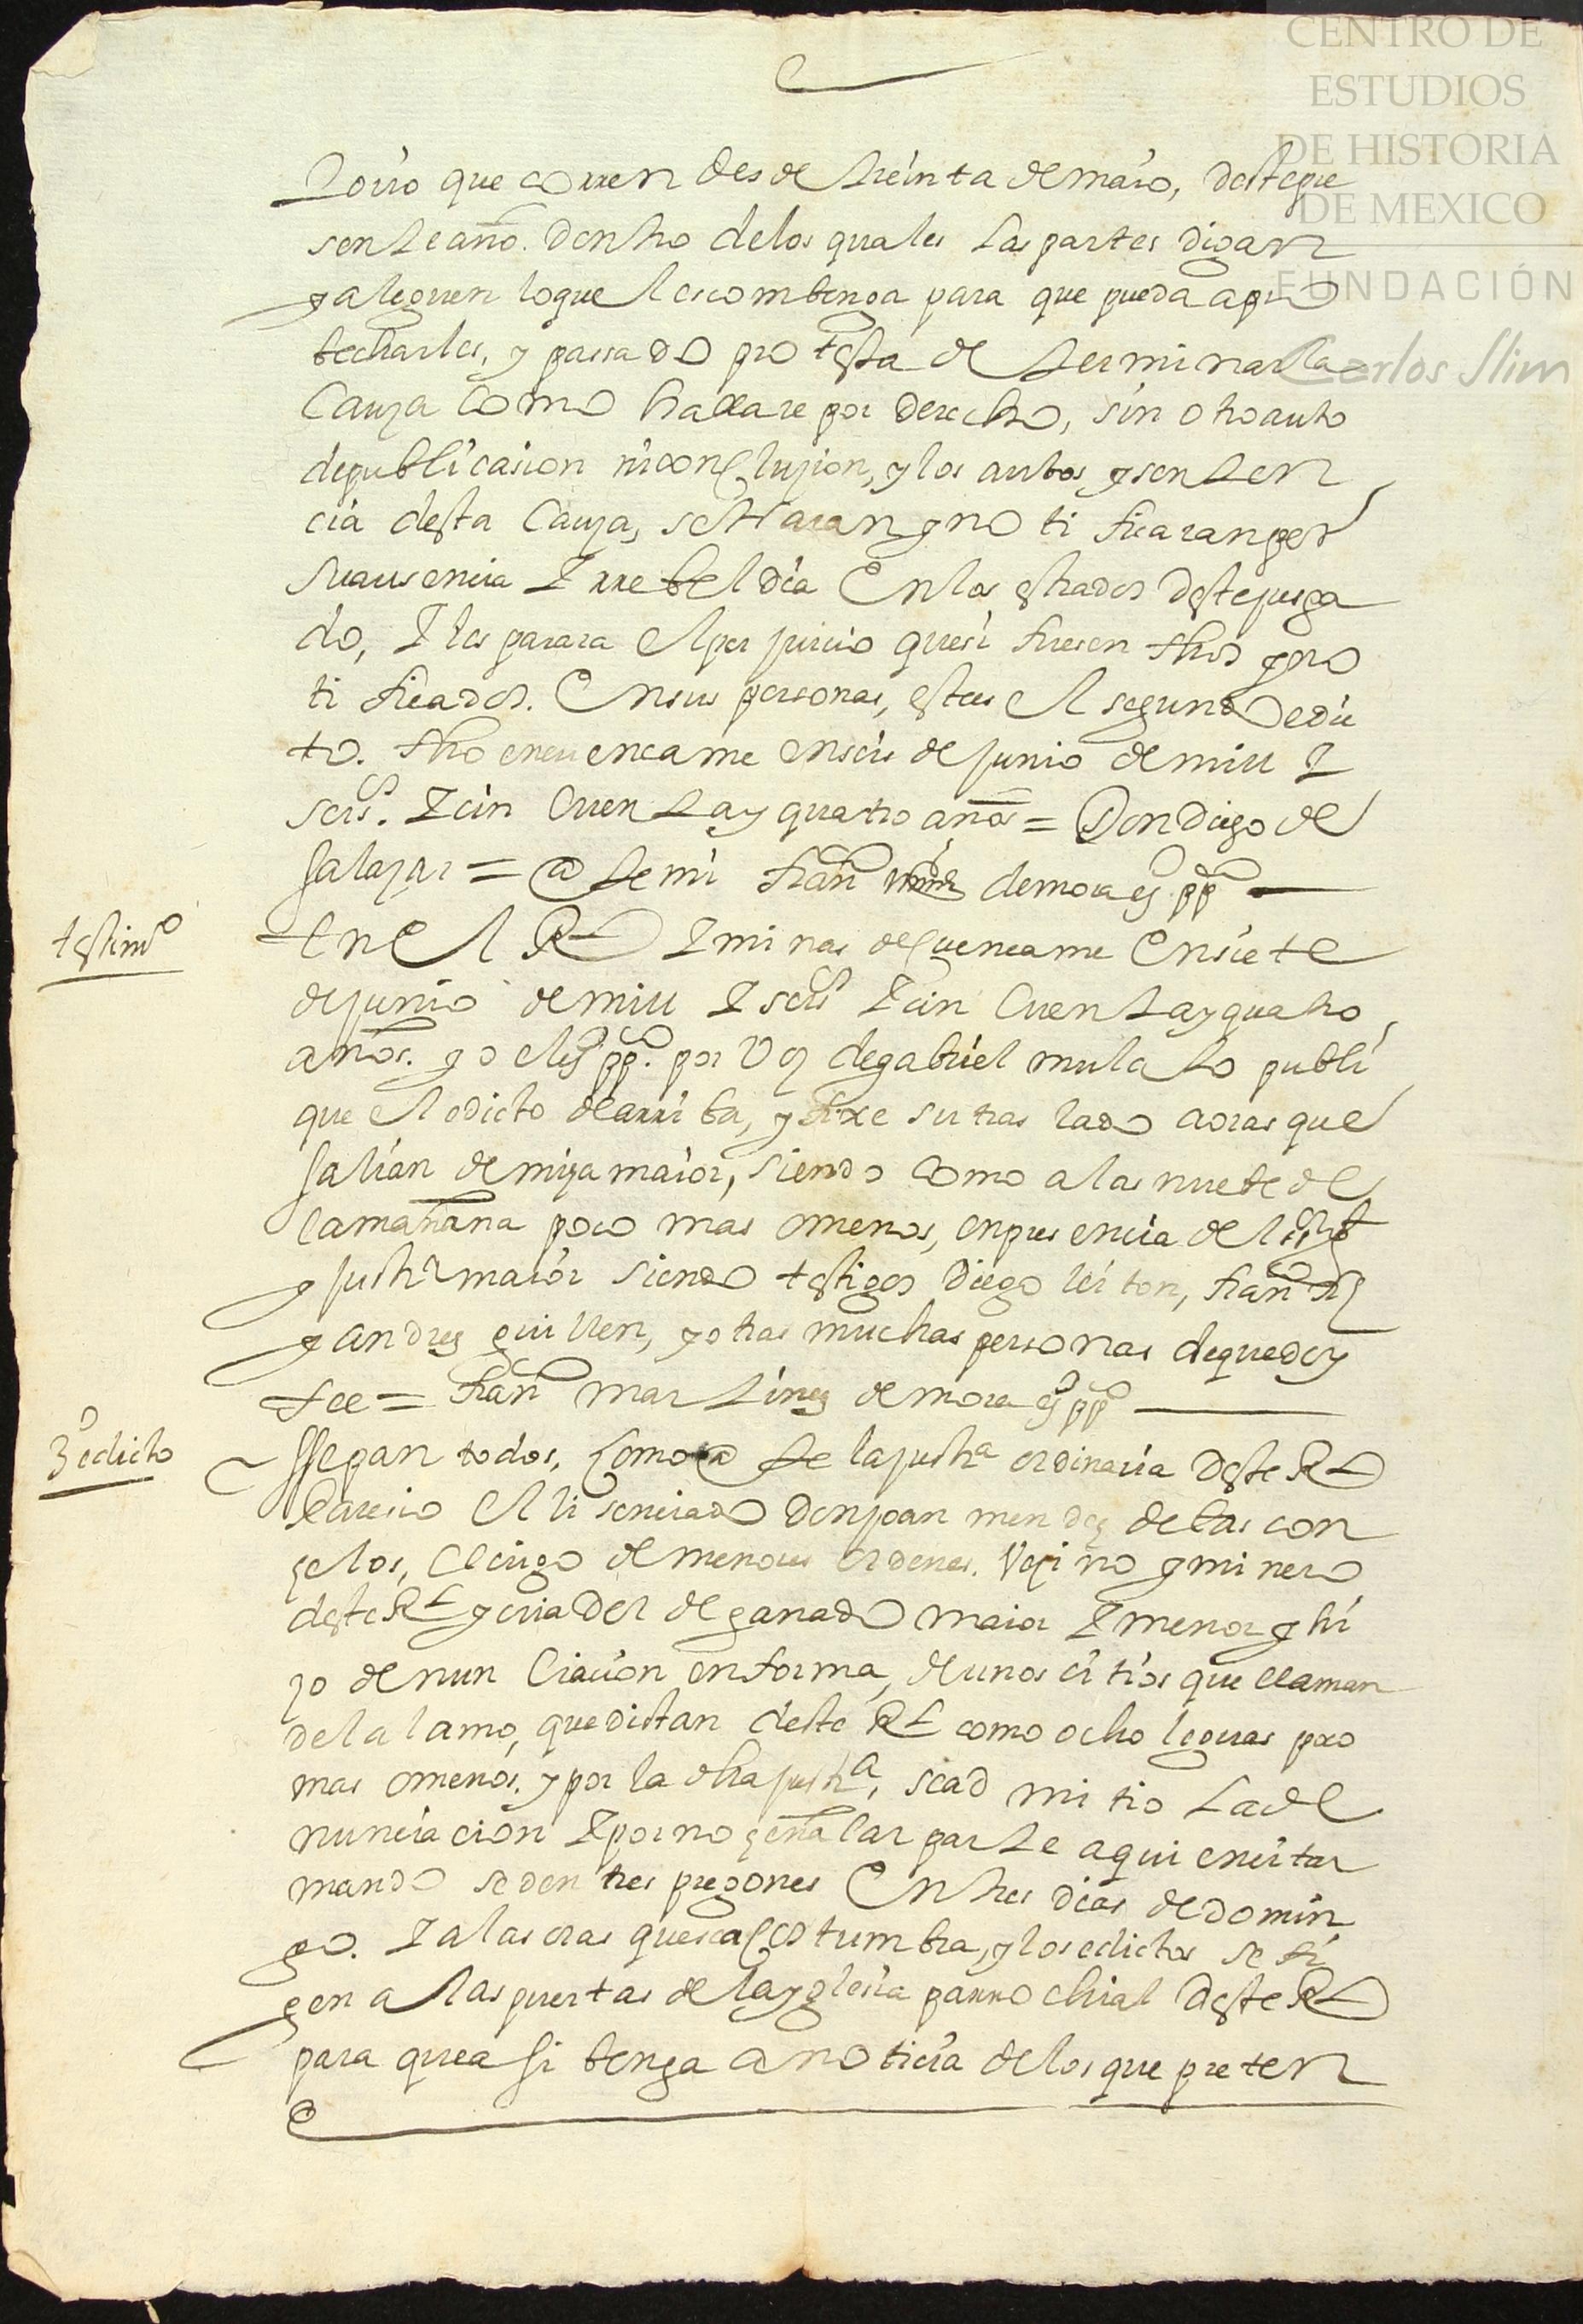 CENTRO DE
ESTUDIOS
DE HISTORIA
DE MEXICO
FUNDACIÓN
Carlos Slim
torio que corren desde treinta de maio, deste pre
sente año. dentro de los quales las partes digan
y aleguen lo que les combenga para que pueda apro
becharles, y passado protesta determinar la
Cauza como hallare por derecho, sin otro auto
de publicasion ni concluzion, y los autos y senten
cia desta Cauza, se haran y no ti ficaran por
su ausencia Y rrebeldia En los estrados deste juzga
do, Y les parara El per juicio que si fuesen fhos y no
ti ficados. En sus personas, este es El segundo edic
to. fho en cuencame en seis de junio de mill Y
seisº. Y cin Cuenta y quatro años = Don Diego de
Salazar = Ante mi franco mrnz de mora esº ppco
testimº
En El Rl Y minas de Cuencame En siete
de junio de mill Y seisº Y cin Cuenta y quatro
años. yo el esº ppco. por Voz de gabriel mulato publi
que El edicto de arriba, y fixe su tras lado a oras que
salian de miza maior, siendo como a las nuebe de
la mañana poco mas o menos, en pres encia del
y justª maior siendo testigos Diego leiton, franco
y andres guillen, y otras muchas personas de que doy
fee = franco Martinez de mora esº ppco
3º edicto
Ssepan todos, Como ante la justª ordinaria deste Rl
Parecio El lisenciado Don joan mendez de bascon
zelos, Clerigo de menores ordenes. Vezino y minero
deste Rl y criador de ganado maior Y menor y hi
zo denun Ciacion en forma, de unos citios que llaman
del alamo, que distan deste Rl como ocho leguas poco
mas o menos. y por la dha justª, se ad mi tio La de
nunciacion Y por no señalar parte a quien citar
mando se den tres pregones En tres dias de domin
go. Y a las oras que se aCostumbra, y los edictos se fi
gen a las puertas de la yglesia parrochial deste Rl
para que a si benga a noticia de los que preten